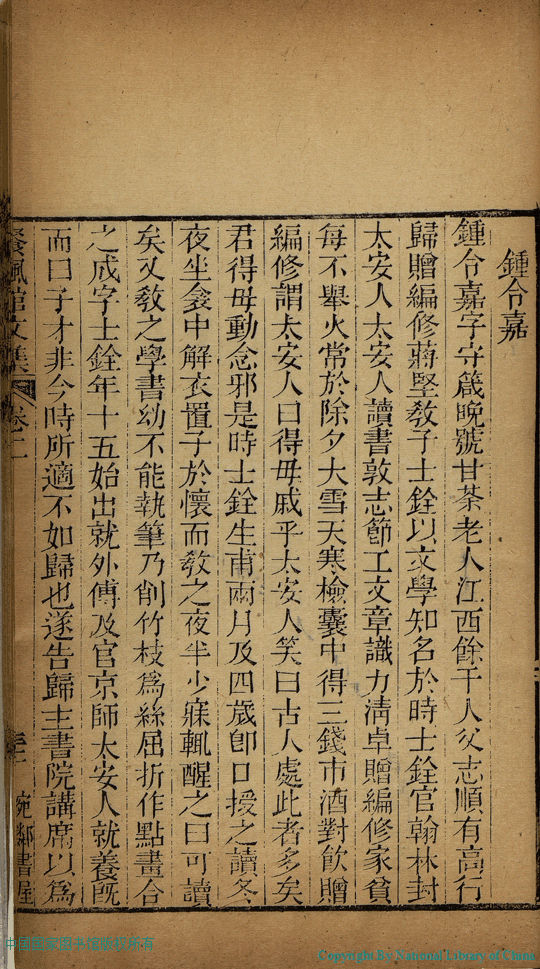 鍾令嘉
鍾令嘉字守箴晚號甘荼老人江西餘干人父志順有高行
歸贈編修蔣堅敎子士銓以文學知名於時士銓官翰林封
太安人太安人讀書敦志節工文章識力淸卓贈編修家貧
每不舉火常於除夕大雪天寒檢囊中得三錢市酒對飮贈
編修謂太安人曰得毋戚乎太安人笑曰古人處此者多矣
君得毋動念邪是時士銓生甫兩月及四歲卽口授之讀冬
夜坐衾中解衣置子於懷而敎之夜半少寐輒醒之曰可讀
矣又敎之學書幼不能執筆乃削竹枝爲絲屈折作點畫合
之成字士銓年十五始出就外傅及官京師太安人就養旣
而曰子才非今時所適不如歸也遂告歸主書院講席以爲
餐楓館文集 卷二 宛鄰書屋
中国国家图书馆版权所有
Copyright By National Library of China